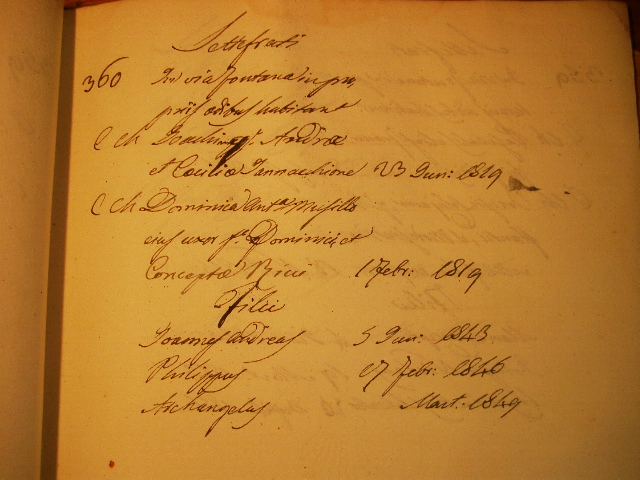 Settefrati
360 In via fontana in pro
priis ædibus habitant
C ch Joachim f. Andreæ
et Ceciliæ Iannachione 23 Jun: 1819
C ch Dominica Anta Musillo
eius uxor fa Dominici et
Conceptæ Ricci 1 Febr: 1819
Filii
Joannes Andreas 5 Jun: 1843
Philippus 17 Febr: 1846
Archangelus Mart. 1849